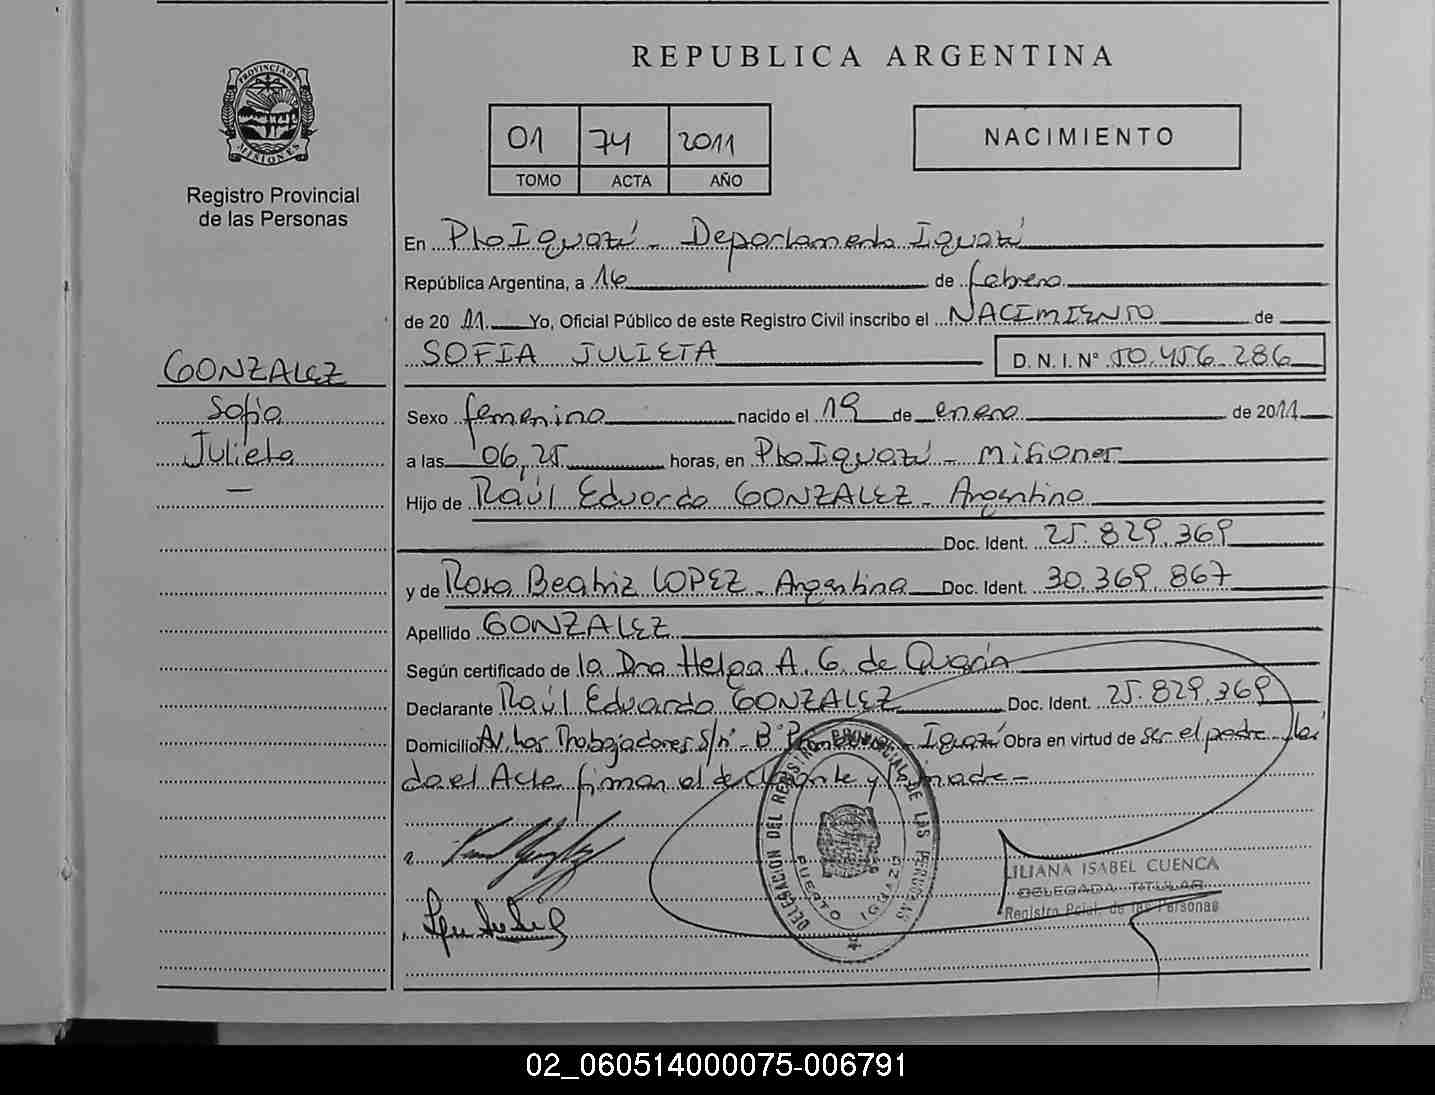 PROVINCIA DE
MISIONES
Registro Provincial
de las Personas
GONZALEZ
Sofia
Julieta
—
REPUBLICA ARGENTINA
01 74 2011
TOMO ACTA AÑO
NACIMIENTO
En Pto Iguazú - Departamento Iguazú
República Argentina, a 16 de febrero
de 20 11 Yo, Oficial Público de este Registro Civil inscribo el NACIMIENTO de
SOFIA JULIETA D.N.I.Nº 50.456.286
Sexo femenino nacido el 19 de enero de 2011
a las 06,25 horas, en Pto Iguazú - Misiones
Hijo de Raúl Eduardo GONZALEZ - Argentino
Doc. Ident. 25.829.369
y de Rosa Beatriz LOPEZ - Argentina Doc. Ident. 30.369.867
Apellido GONZALEZ
Según certificado de la Dra Helga A. G. de
Declarante Raúl Eduardo GONZALEZ Doc. Ident. 25.829.369
Domicilio Av. Los Trabajadores S/nº - Bº - Iguazú Obra en virtud de ser el padre - leí
da el Acta firman el declarante y la madre -
DELEGACION DEL REGISTRO PROVINCIAL DE LAS PERSONAS
PUERTO IGUAZU
LILIANA ISABEL CUENCA
DELEGADA TITULAR
Registro Pcial. de las Personas
02_060514000075-006791